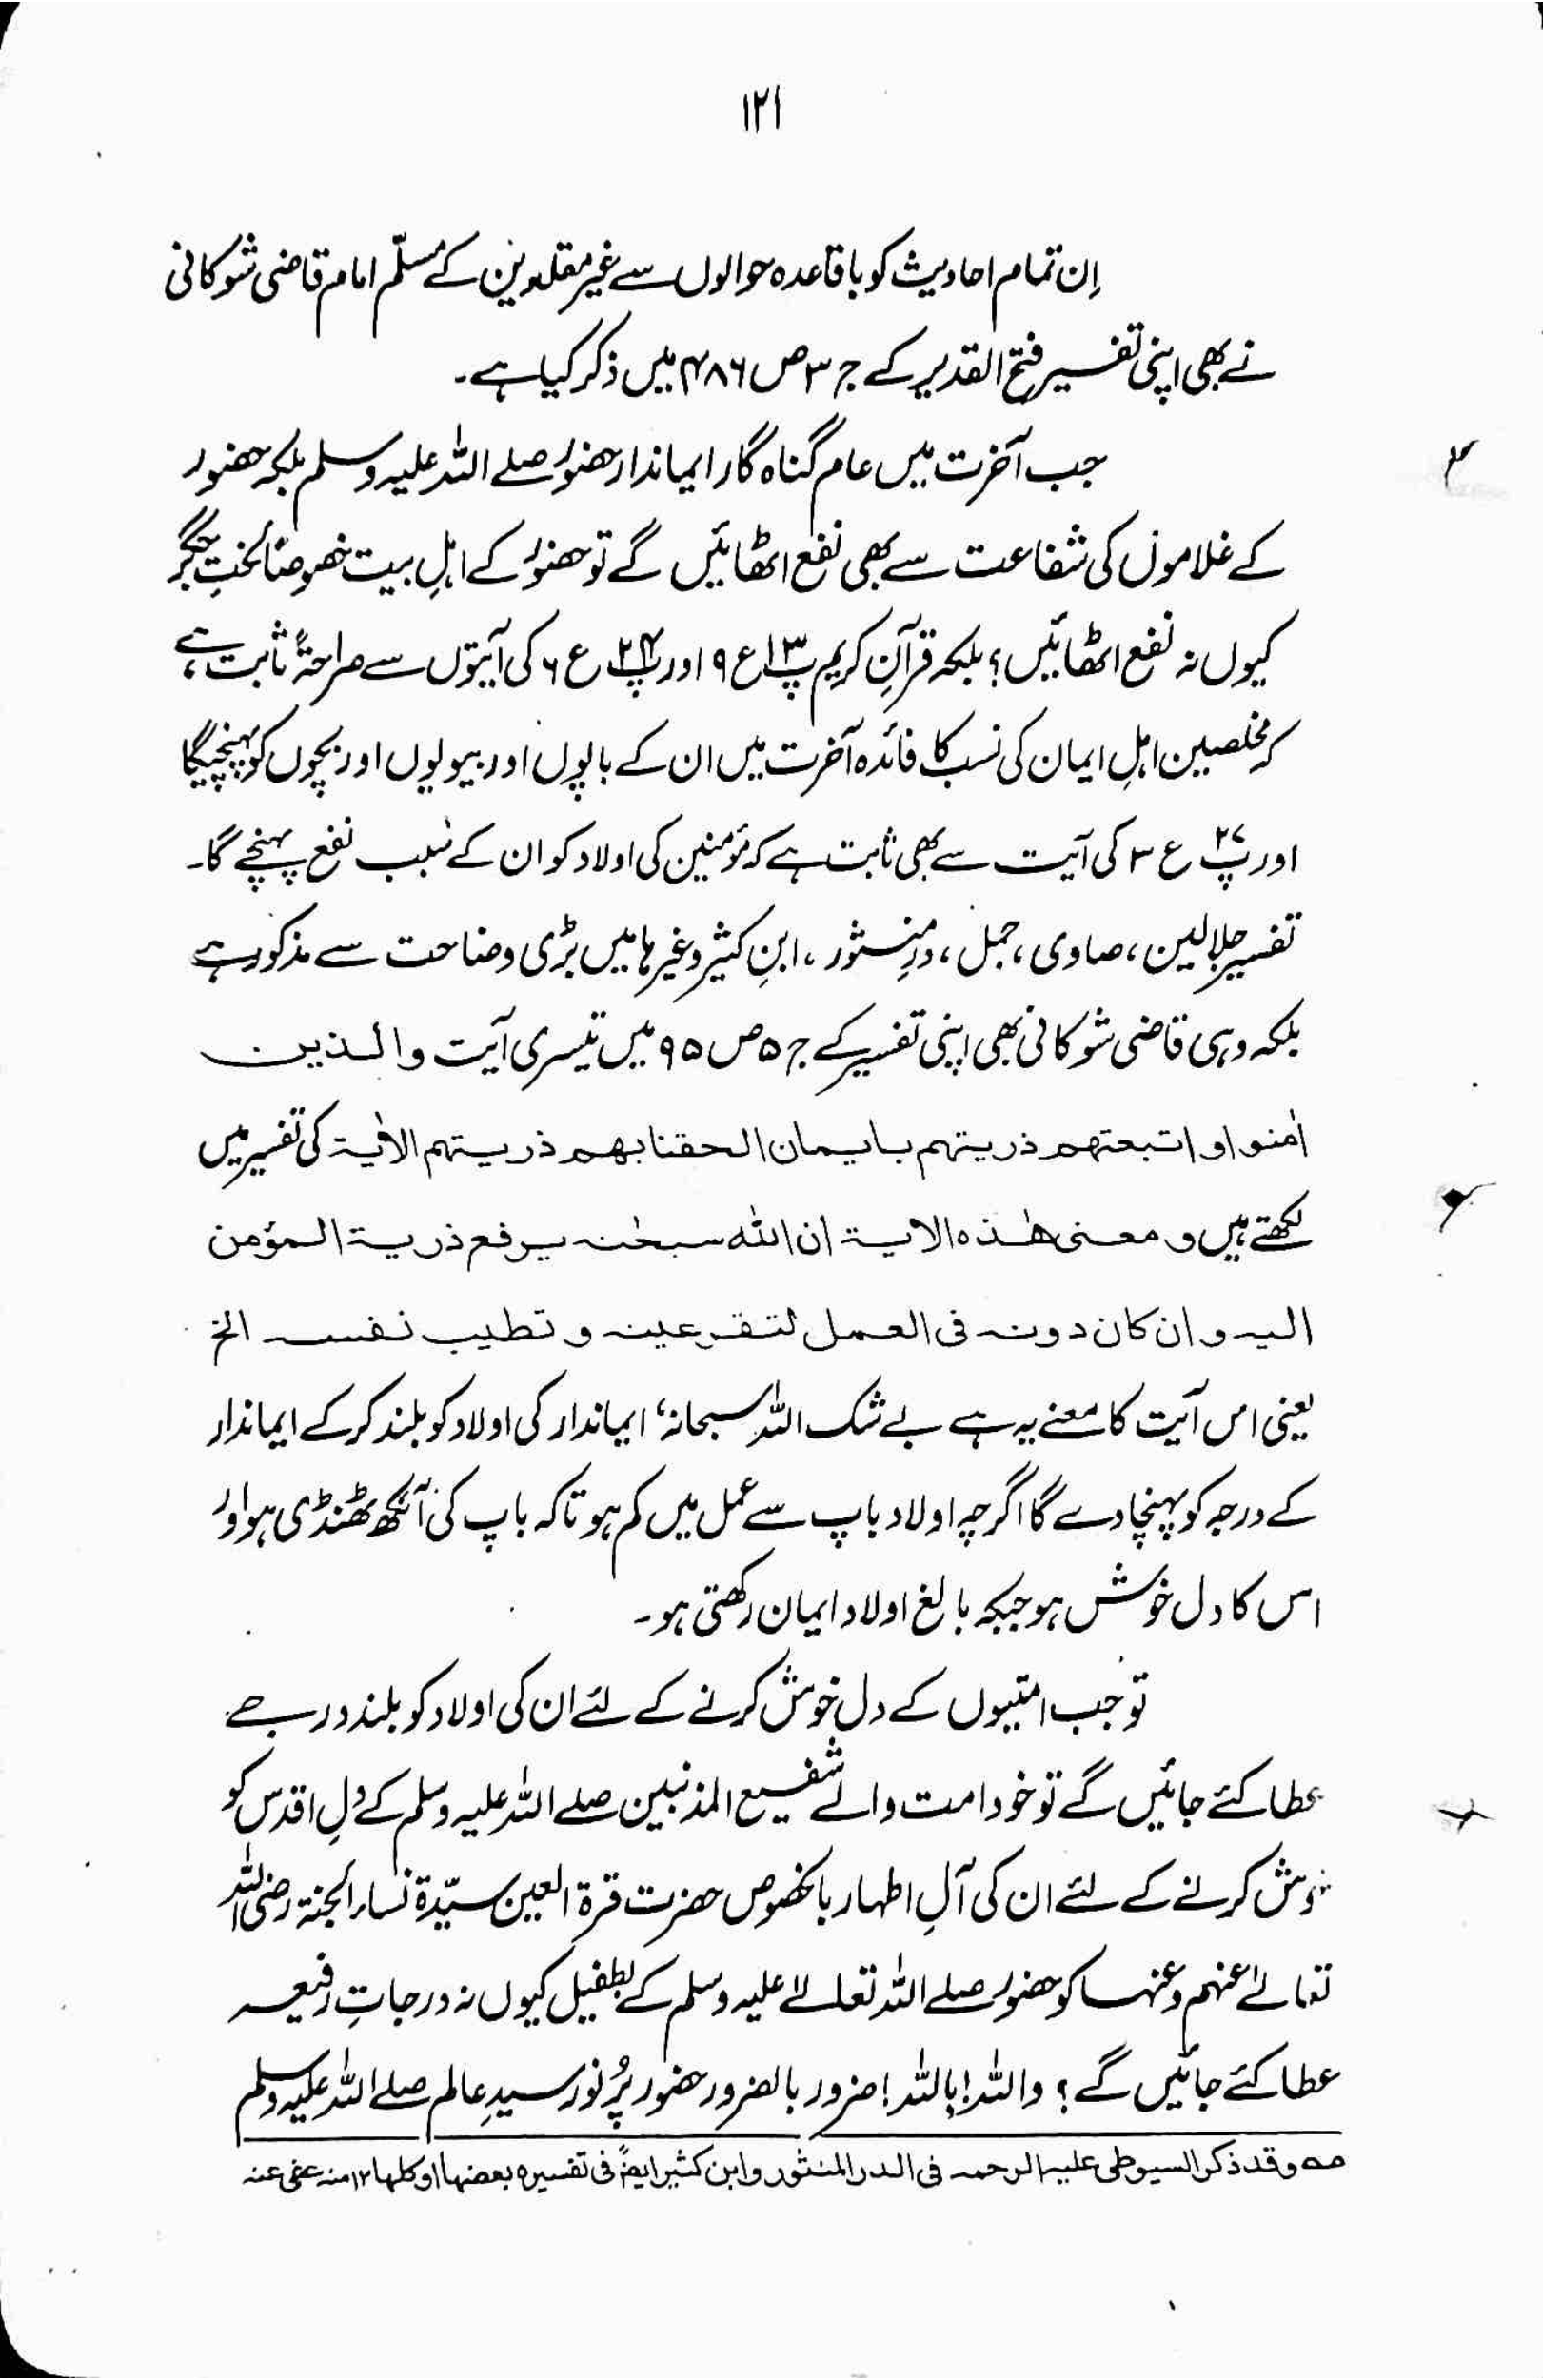 ۱۲۱
اِن تمام احادیث کو باقاعدہ حوالوں سے غیر مقلدین کے مسلّم امام قاضی شوکانی
نے بھی اپنی تفسیر فتح القدیر کے ج ۳ ص ۴۸۶ میں ذکر کیا ہے۔
جب آخرت میں عام گناہ گار ایماندار حضور صلے اللہ علیہ وسلم بلکہ حضور
کے غلاموں کی شفاعت سے بھی نفع اٹھائیں گے تو حضور کے اہلِ بیت خصوصًا لختِ جگر
کیوں نہ نفع اٹھائیں؟ بلکہ قرآنِ کریم پ۱۳ ع ۹ اور پ۲۴ ع ۶ کی آیتوں سے صراحۃً ثابت ہے،
کہ مخلصین اہلِ ایمان کی نسب کا فائدہ آخرت میں ان کے باپوں اور بیویوں اور بچوں کو پہنچیگا
اور پ۲۷ ع ۳ کی آیت سے بھی ثابت ہے کہ مؤمنین کی اولاد کو ان کے سبب نفع پہنچے گا۔
تفسیر جلالین، صاوی، جمل، درِ منثور، ابنِ کثیر وغیرہا میں بڑی وضاحت سے مذکور ہے
بلکہ وہی قاضی شوکانی بھی اپنی تفسیر کے ج ۵ ص ۹۵ میں تیسری آیت والذین
اٰمنوا و اتبعتھم ذریتھم بایمان الحقنا بھم ذریتھم الاٰیۃ کی تفسیر میں
لکھتے ہیں و معنی ھٰذہ الایۃ ان اللہ سبحٰنہ یرفع ذریۃ المؤمن
الیہ و ان کان دونہ فی العمل لتقر عینہ و تطیب نفسہ الخ
یعنی اس آیت کا معنے یہ ہے بے شک اللہ سبحانہٗ ایماندار کی اولاد کو بلند کر کے ایماندار
کے درجہ کو پہنچا دے گا اگرچہ اولاد باپ سے عمل میں کم ہو تاکہ باپ کی آنکھ ٹھنڈی ہو اور
اس کا دل خوش ہو جبکہ بالغ اولاد ایمان رکھتی ہو۔
تو جب امتیوں کے دل خوش کرنے کے لئے ان کی اولاد کو بلند درجے
عطا کئے جائیں گے تو خود امت والے شفیع المذنبین صلے اللہ علیہ وسلم کے دلِ اقدس کو
خوش کرنے کے لئے ان کی آلِ اطہار بالخصوص حضرت قرۃ العین سیّدۃ نساء الجنۃ رضی اللہ
تعالےٰ عنہم و عنہا کو حضور صلے اللہ تعالےٰ علیہ وسلم کے بطفیل کیوں نہ درجاتِ رفیعہ
عطا کئے جائیں گے؟ واللہ! باللہ! ضرور بالضرور حضور پُر نور سیدِ عالم صلے اللہ علیہ وسلم
صہ وقد ذکر السیوطی علیہ الرحمہ فی الدر المنثور وابن کثیر ایضًا فی تفسیرہ بعضھا او کلھا ۱۲ منہ عفی عنہ